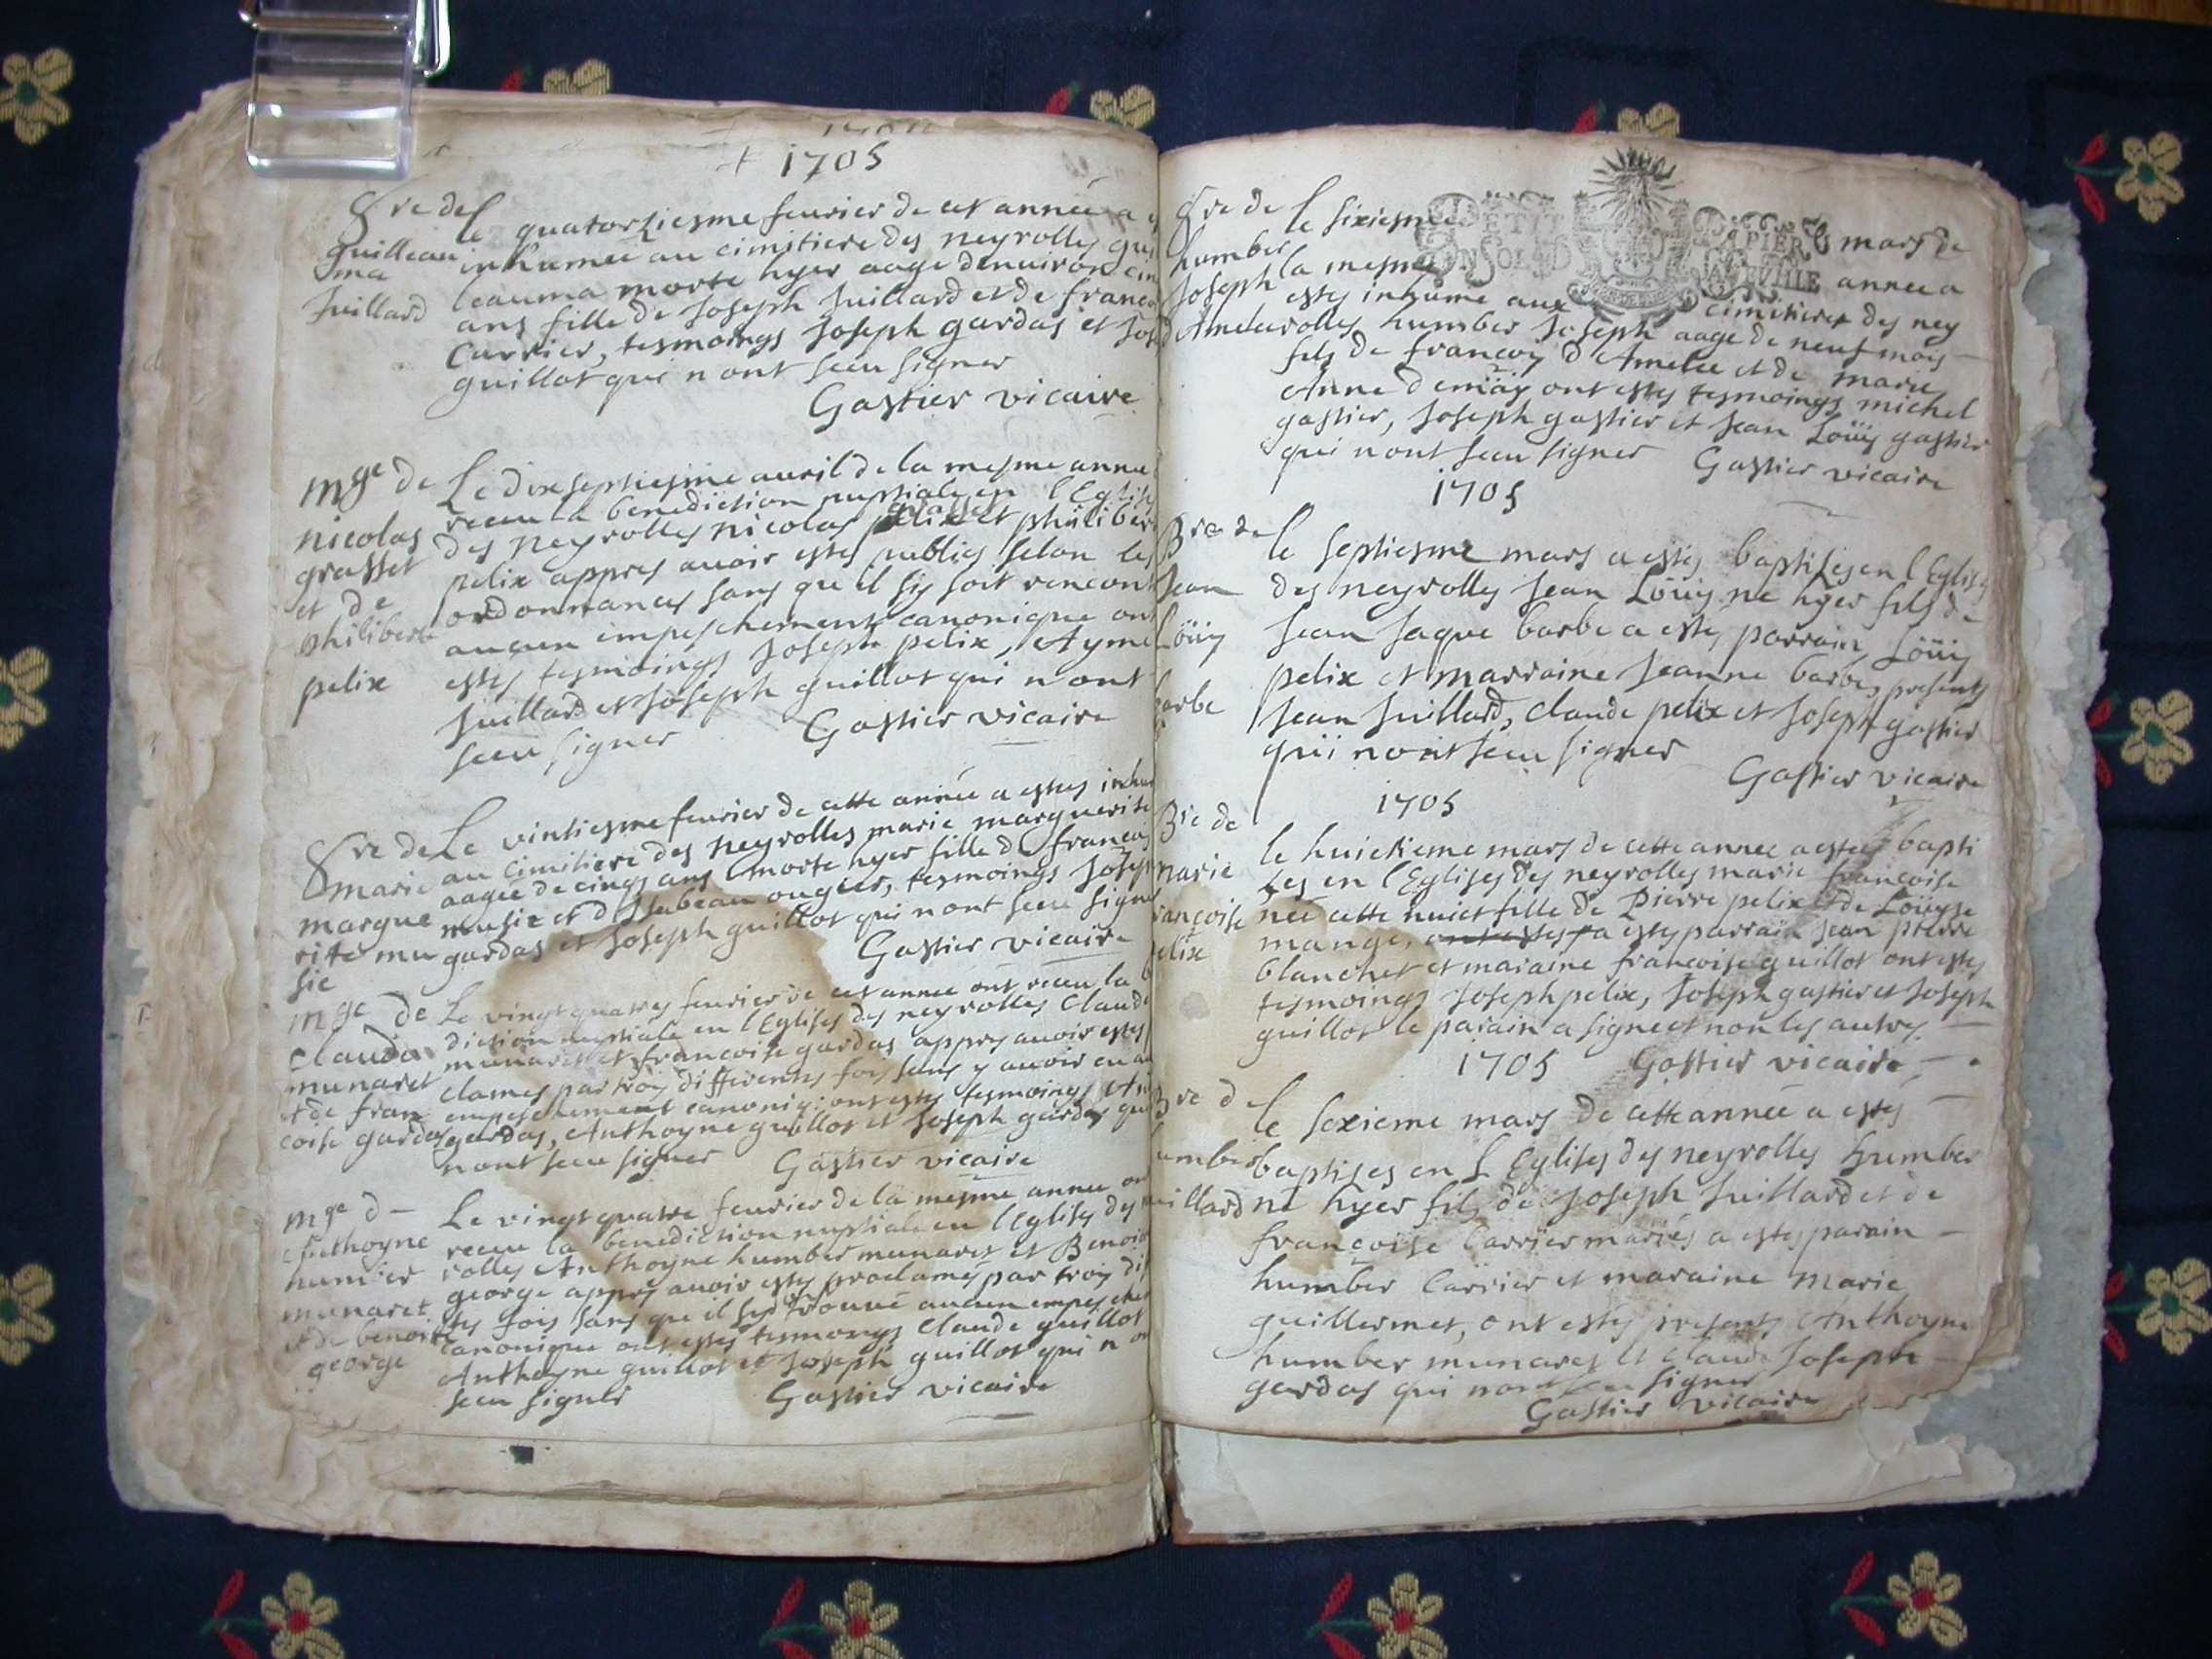 1705
Sre de
guilleau
ma
Juillard
le quatorziesme feurier de cet année a
inhumée au cimitiere des neyrolles gui
leauma morte hyer aage denuiron cin
ans fille de Joseph Juillard et de franco
Carrier, tesmoings Joseph gardas et Jos
guillot qui n ont sceu signer
Gastier vicaire
mge de
nicolas
grasset
et de
philiberte
pelix
Le dixseptiesme auril de la mesme anne
receu la benediction nuptiale en l Eglise
grasset
des neyrolles nicolas pelix et philiber
pelix appres auoir estes publies selon les
ordonnances sans que il sis soit rencont
aucun impeschement canonique ont
estes tesmoings Joseph pelix, Ayme
Juillard et Joseph guillot qui n ont
sceu signer Gastier vicaire
Sre de
marie
margue
rite mu
sie
Le vintiesme feurier de cette année a estes inhu
au cimitiere des neyrolles marie marguerite
aagée de cinqs ans morte hyer fille de francois
musie et d Isabeau ougier, tesmoings Josep
gardas et Joseph guillot qui n ont sceu signe
Gastier vicaire
mge de
Claude
munaret
et de fran
coise gardas
Le vingt quatres feurier de cet année ont receu la b
diction nuptiale en l Eglises des neyrolles Claude
munaret et francoise gardas appres auoir estes
clames par trois differentes fois sans y auoir eu au
empeschement canoniq: ont estes tesmoings
gardas, Anthoyne guillot et Joseph gardas qui
n ont sceu signer Gastier vicaire
mge d
Anthoyne
humber
munaret
et de benoite
george
Le vingt quatre feurier de la mesme annee on
receu la benediction nuptiale en l Eglises des ney
rolles Anthoyne humber munaret et Benoit
george appres auoir estes proclames par trois di
tes fois sans que il sis trouué aucun empesche
canonique ont estes tesmoings Claude guillot
Anthoyne guillot et Joseph guillot qui n on
sceu signer Gastier vicaire
PETIT PAPIER
Sre de
humber
Joseph
d Amelee
le sixiesme mars de
la mesme annee a
estes inhume aux cimitieres des ney
rolles humber Joseph aage de neuf mois
fils de francois d Amelee et de marie
Anne demay ont estes tesmoings michel
gastier, Joseph gastier et Jean Loüis gastier
qui n ont sceu signer Gastier vicaire
1705
Bre de
Jean
Loüis
barbe
le septiesme mars a estes baptises en l Eglises
des neyrolles Jean Loüis ne hyer fils de
Jean Jaque barbe a estes parrain Loüis
pelix et marraine Jeanne barbe, presents
Jean Juillard, claude pelix et Joseph gastier
qui n ont sceu signer
Gastier vicaire
1705
Bre de
marie
francoise
pelix
le huictieme mars de cette annee a estes bapti
ses en l Eglises des neyrolles marie francoise
neé cette nuict fille de Pierre pelix et de Loüyse
mange, a estes parrain Jean pierre
blanchet et maraine francoise guillot ont estes
tesmoings Joseph pelix, Joseph gastier et Joseph
guillot le parain a signe et non les autres
1705 Gastier vicaire
Bre d
humber
Juillard
le sexieme mars de cette année a estes
baptises en l Eglises des neyrolles humber
né hyer fils de Joseph Juillard et de
françoise Carrier mariés a estes parain
humber Carrier et maraine Marie
guillermet, ont estes presents Anthoyne
humber munaret et Claude Joseph
gardas qui n ont sceu signer
Gastier vicaire